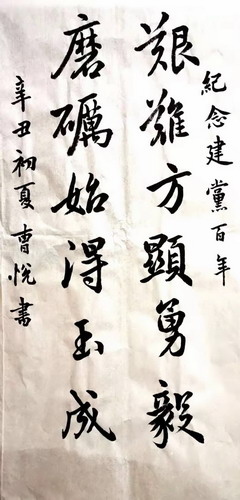 紀念建黨百年
艱難方顯勇毅
磨礪始得玉成
辛丑初夏曹悅書